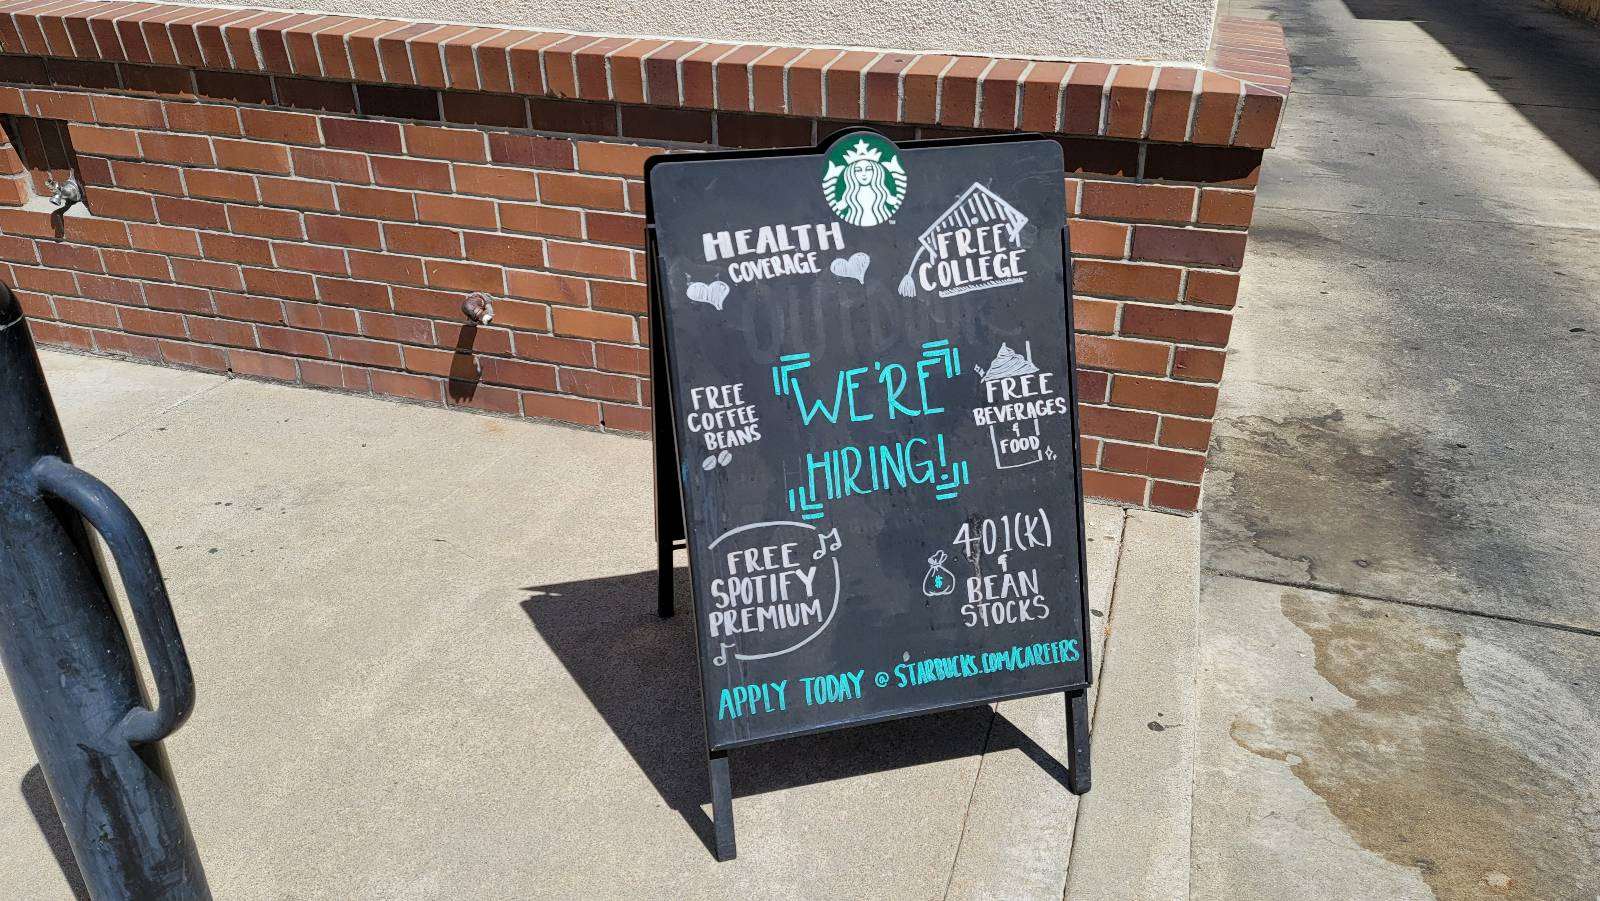 HEALTH
COVERAGE
FREE
COLLEGE
FREE
COFFEE
BEANS
WE'RE
HIRING!
FREE
BEVERAGES
&
FOOD
FREE
SPOTIFY
PREMIUM
401(K)
&
BEAN
STOCKS
$
APPLY TODAY @ STARBUCKS.COM/CAREERS